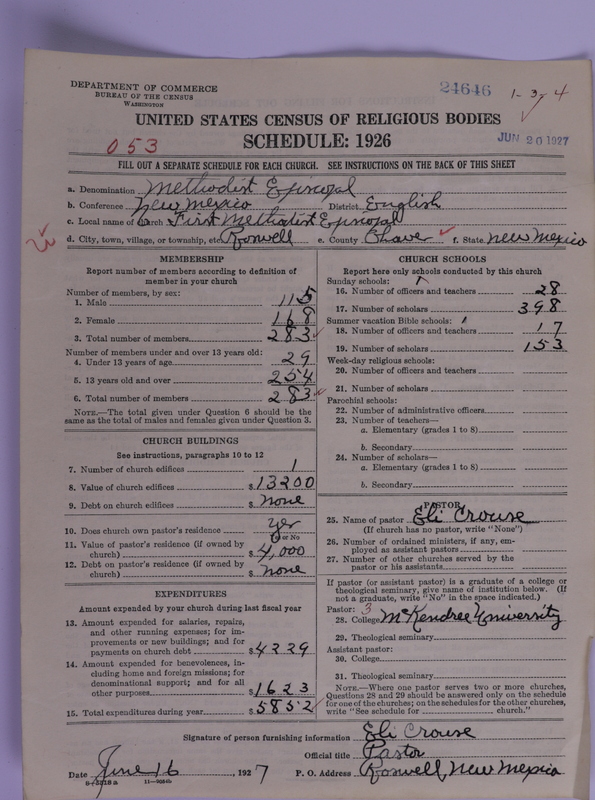 DEPARTMENT OF COMMERCE
BUREAU OF THE CENSUS
WASHINGTON
24646
1-3-4
UNITED STATES CENSUS OF RELIGIOUS BODIES
053
SCHEDULE: 1926
JUN 20 1927
FILL OUT A SEPARATE SCHEDULE FOR EACH CHURCH. SEE INSTRUCTIONS ON THE BACK OF THIS SHEET
a. Denomination Methodist Episcopal
b. Conference New Mexico District English
c. Local name of church First Methodist Episcopal
d. City, town, village, or township, etc. Roswell e. County Chaves f. State New Mexico
MEMBERSHIP
Report number of members according to definition of
member in your church
Number of members, by sex:
1. Male 115
2. Female 168
3. Total number of members 283
Number of members under and over 13 years old:
4. Under 13 years of age 29
5. 13 years old and over 254
6. Total number of members 283
NOTE.—The total given under Question 6 should be the
same as the total of males and females given under Question 3.
CHURCH BUILDINGS
See instructions, paragraphs 10 to 12
7. Number of church edifices 1
8. Value of church edifices $13200
9. Debt on church edifices $ None
10. Does church own pastor's residence Yes
Yes or No
11. Value of pastor's residence (if owned by
church) $4,000
12. Debt on pastor's residence (if owned by
church) $ None
EXPENDITURES
Amount expended by your church during last fiscal year
13. Amount expended for salaries, repairs,
and other running expenses; for im-
provements or new buildings; and for
payments on church debt $4229
14. Amount expended for benevolences, in-
cluding home and foreign missions; for
denominational support; and for all
other purposes $1623
15. Total expenditures during year $5852
CHURCH SCHOOLS
Report here only schools conducted by this church
Sunday schools:
16. Number of officers and teachers 28
17. Number of scholars 398
Summer vacation Bible schools:
18. Number of officers and teachers 17
19. Number of scholars 153
Week-day religious schools:
20. Number of officers and teachers
21. Number of scholars
Parochial schools:
22. Number of administrative officers
23. Number of teachers—
a. Elementary (grades 1 to 8)
b. Secondary
24. Number of scholars—
a. Elementary (grades 1 to 8)
b. Secondary
PASTOR
25. Name of pastor Eli Crouse
(If church has no pastor, write "None")
26. Number of ordained ministers, if any, em-
ployed as assistant pastors
27. Number of other churches served by the
pastor or his assistants
If pastor (or assistant pastor) is a graduate of a college or
theological seminary, give name of institution below. (If
not a graduate, write "No" in the space indicated.)
Pastor: 3
28. College McKendree University
29. Theological seminary
Assistant pastor:
30. College
31. Theological seminary
NOTE.—Where one pastor serves two or more churches,
Questions 28 and 29 should be answered only on the schedule
for one of the churches; on the schedules for the other churches,
write "See schedule for church."
Signature of person furnishing information Eli Crouse
Official title Pastor
Date June 16, 1927 P. O. Address Roswell, New Mexico